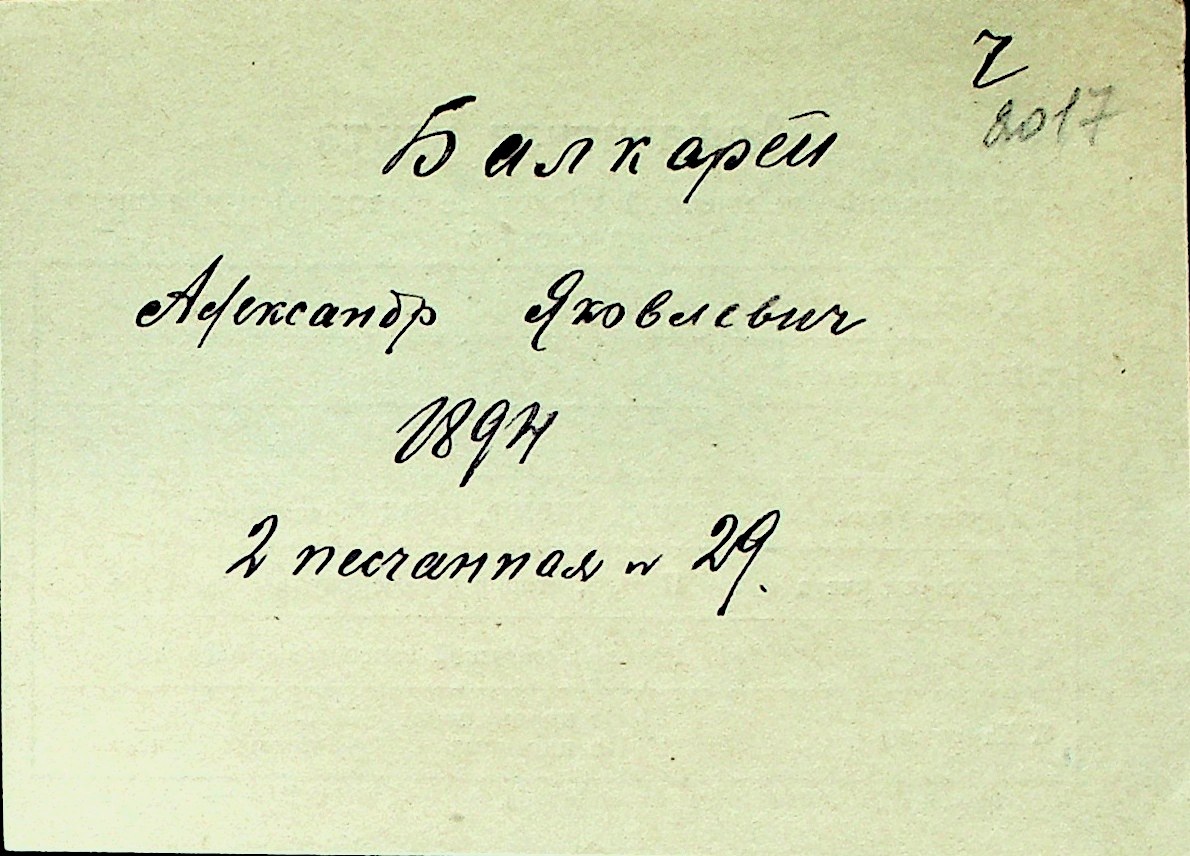 2017
Балкарей
Александр Яковлевич
1894
2 песчанная 29.